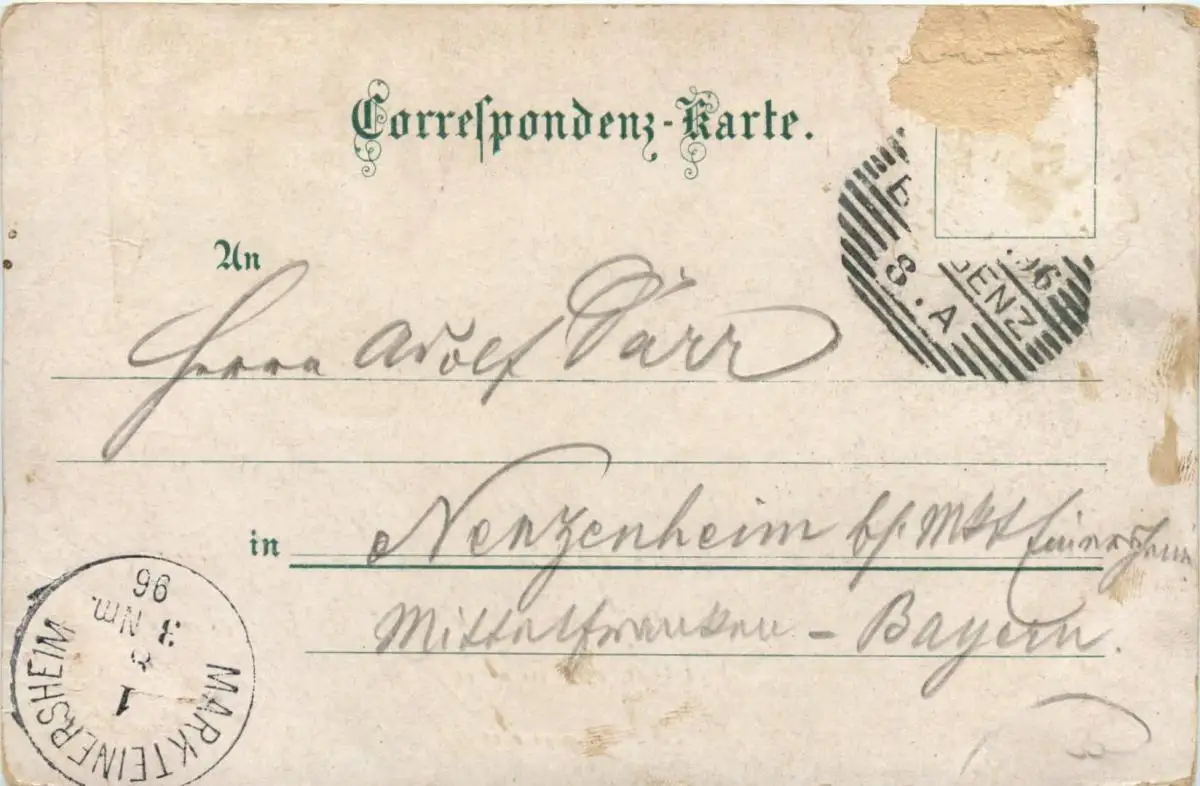 Correspondenz-Karte.
An
Herrn Adolf Dürr
in Nenzenheim b/ Mkt Einersheim
Mittelfranken - Bayern.
96
DENZ
S.A
MARKTEINERSHEIM
1
3 Nm.
96